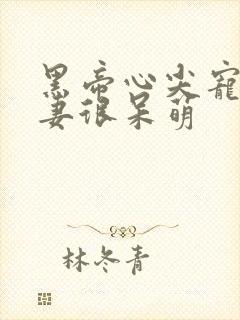 黑帝心尖宠
妻很呆萌
林冬青